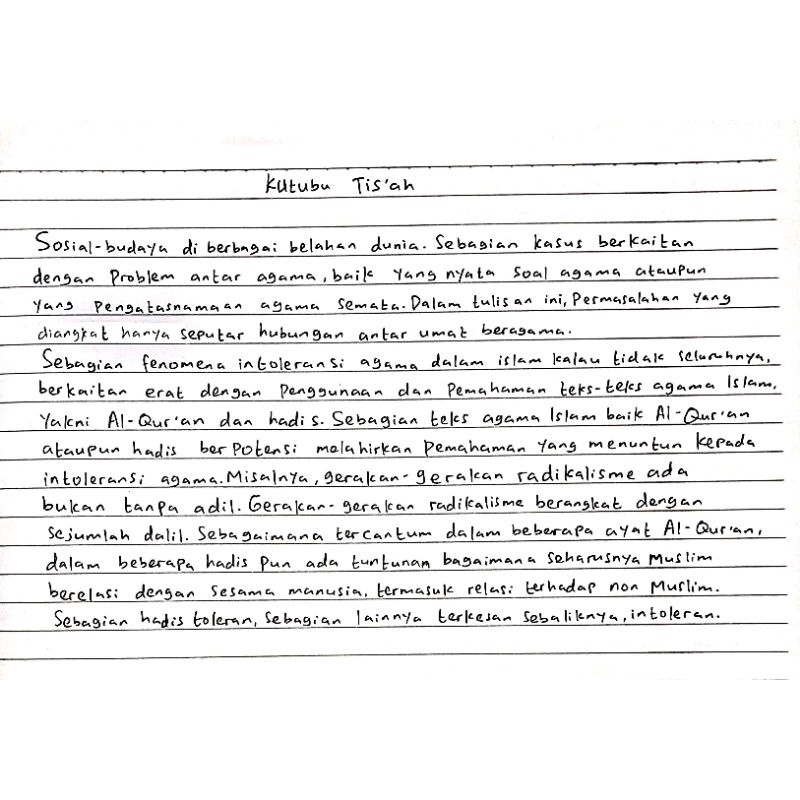 Kutubu Tis'ah
Sosial-budaya di berbagai belahan dunia. Sebagian kasus berkaitan
dengan Problem antar agama, baik yang nyata soal agama ataupun
yang pengatasnamaan agama semata. Dalam tulisan ini, Permasalahan yang
diangkat hanya seputar hubungan antar umat beragama.
Sebagian fenomena intoleransi agama dalam islam kalau tidak seluruhnya,
berkaitan erat dengan Penggunaan dan Pemahaman teks-teks agama Islam,
Yakni Al-Qur'an dan hadis. Sebagian teks agama Islam baik Al-Qur'an
ataupun hadis berpotensi melahirkan Pemahaman yang menuntun kepada
intoleransi agama. Misalnya, gerakan-gerakan radikalisme ada
bukan tanpa adil. Gerakan-gerakan radikalisme berangkat dengan
sejumlah dalil. Sebagaimana tercantum dalam beberapa ayat Al-Qur'an,
dalam beberapa hadis pun ada tuntunan bagaimana seharusnya Muslim
berelasi dengan sesama manusia, termasuk relasi terhadap non Muslim.
Sebagian hadis toleran, sebagian lainnya terkesan sebaliknya, intoleran.